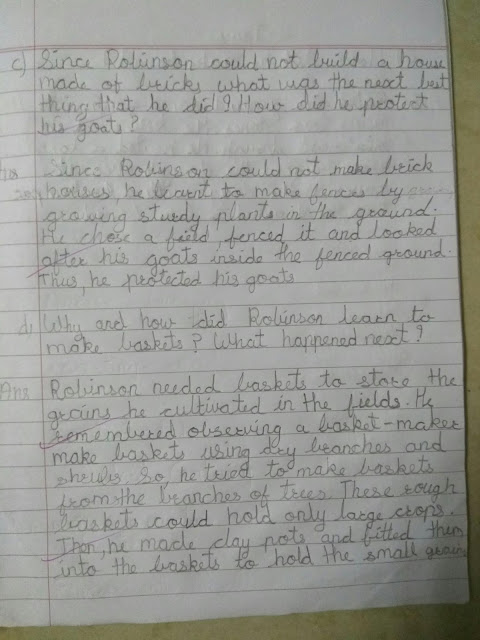 c) Since Robinson could not build a house
made of bricks what was the next best
thing that he did? How did he protect
his goats?
Ans Since Robinson could not make brick
houses, he learnt to make fences by
growing sturdy plants in the ground.
He chose a field, fenced it and looked
after his goats inside the fenced ground.
Thus, he protected his goats
d) Why and how did Robinson learn to
make baskets? What happened next?
Ans Robinson needed baskets to store the
grains he cultivated in the fields. He
remembered observing a basket-maker
make baskets using dry branches and
shrubs. So, he tried to make baskets
from the branches of trees. These rough
baskets could hold only large crops.
Then, he made clay pots and fitted them
into the baskets to hold the small grains